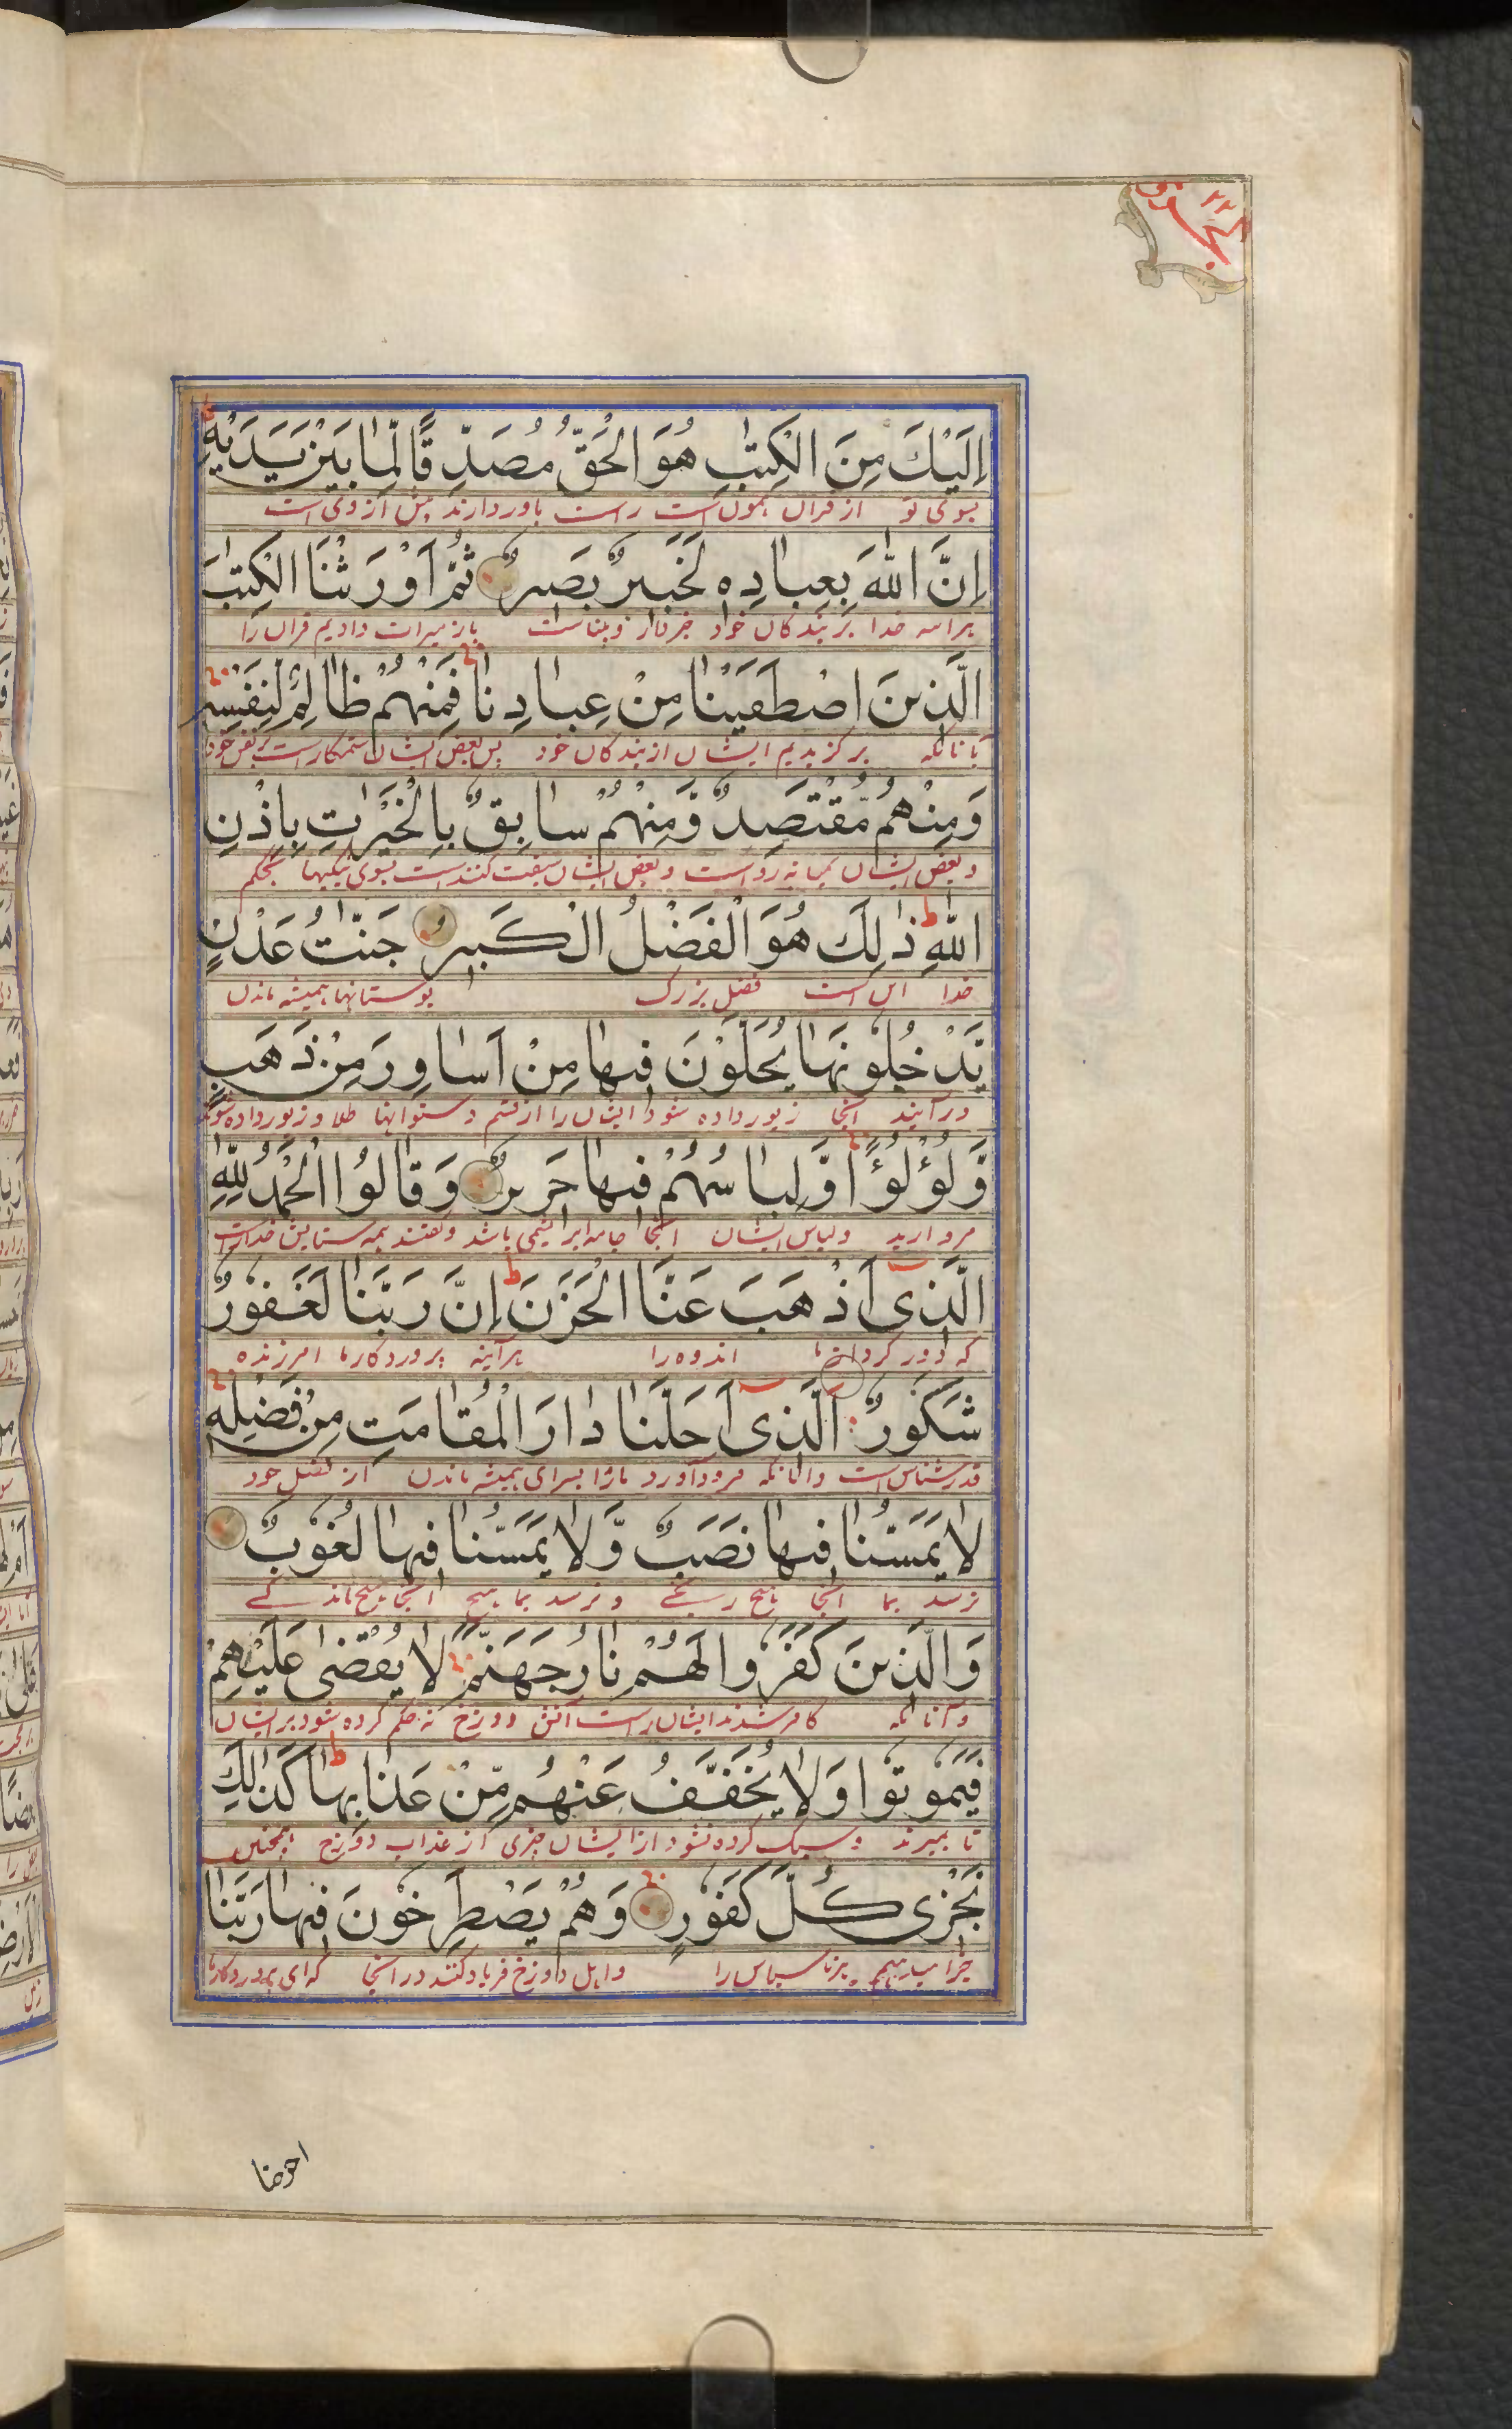 اِلَيْكَ مِنَ الْكِتٰبِ هُوَ الْحَقُّ مُصَدِّقًا لِّمَا بَيْنَ يَدَيْهِ
بسوی تو از قران همون است راست باور دارنده پیش از وی است
اِنَّ اللّٰهَ بِعِبَادِهٖ لَخَبِيْرٌ بَصِيْرٌ ثُمَّ اَوْرَثْنَا الْكِتٰبَ
خدا بر بندکان خود خبردار و بیناست باز میراث دادیم قران را
الَّذِيْنَ اصْطَفَيْنَا مِنْ عِبَادِنَا فَمِنْهُمْ ظَالِمٌ لِّنَفْسِهٖ
بانانکه برکزیدیم ایشان از بندکان خود پس بعض ایشان ستمکار است بر نفس خود
وَمِنْهُمْ مُّقْتَصِدٌ وَّمِنْهُمْ سَابِقٌ بِالْخَيْرٰتِ بِاِذْنِ
و بعض ایشان میانه رو است و بعض ایشان سبقت کننده است بسوی نیکیها بحکم
اللّٰهِ ذٰلِكَ هُوَ الْفَضْلُ الْكَبِيْرُ جَنّٰتُ عَدْنٍ
خدا این است فضل بزرک بوستانها همیشه ماندن
يَّدْخُلُوْنَهَا يُحَلَّوْنَ فِيْهَا مِنْ اَسَاوِرَ مِنْ ذَهَبٍ
در آیند آنجا زیور داده شود ایشان را از قسم دستوانها طلا و زیور داده شوند
وَّلُؤْلُؤًا وَّلِبَاسُهُمْ فِيْهَا حَرِيْرٌ وَقَالُوا الْحَمْدُ لِلّٰهِ
مروارید و لباس ایشان آنجا جامه ابریشمی باشد و کفتند همه ستایش خدا راست
الَّذِيْ اَذْهَبَ عَنَّا الْحَزَنَ اِنَّ رَبَّنَا لَغَفُوْرٌ
که دور کرد از ما اندوه را هر آینه پروردکار ما امرزنده
شَكُوْرٌ الَّذِيْ اَحَلَّنَا دَارَ الْمُقَامَتِ مِنْ فَضْلِهٖ
قدرشناس است و آنکه فرود آورد مارا بسرای همیشه ماندن از فضل خود
لَا يَمَسُّنَا فِيْهَا نَصَبٌ وَّلَا يَمَسُّنَا فِيْهَا لُغُوْبٌ
نرسد بما آنجا هیچ رنجی و نرسد بما هیچ آنجا هیچ ماندکی
وَالَّذِيْنَ كَفَرُوْا لَهُمْ نَارُ جَهَنَّمَ لَا يُقْضٰى عَلَيْهِمْ
و آنانکه کافر شدند ایشان راست آتش دوزخ نه حکم کرده شود بر ایشان
فَيَمُوْتُوْا وَلَا يُخَفَّفُ عَنْهُمْ مِّنْ عَذَابِهَا كَذٰلِكَ
تا بمیرند و سبک کرده نشود از ایشان چیزی از عذاب دوزخ همچنین
نَجْزِيْ كُلَّ كَفُوْرٍ وَهُمْ يَصْطَرِخُوْنَ فِيْهَا رَبَّنَا
جزا میدهیم هر ناسپاس را و اهل دوزخ فریاد کنند در آنجا که ای پروردکار ما
اخرجنا